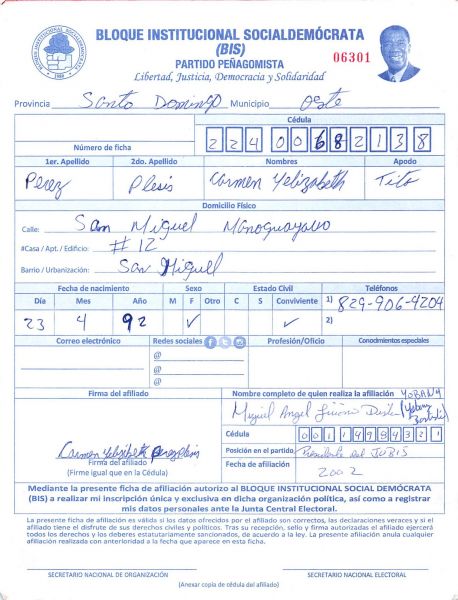 BLOQUE INSTITUCIONAL SOCIALDEMÓCRATA
(BIS)
PARTIDO PEÑAGOMISTA
06301
Libertad, Justicia, Democracia y Solidaridad
Provincia Santo Domingo Municipio Oeste
Cédula
Número de ficha 22400682138
1er. Apellido 2do. Apellido Nombres Apodo
Perez Plesis Carmen Yelizabeth Tito
Domicilio Físico
Calle: San Miguel Manoguayavo
#Casa / Apt. / Edificio: #12
Barrio / Urbanización: San Miguel
Fecha de nacimiento Sexo Estado Civil Teléfonos
Día Mes Año M F Otro C S Conviviente 1) 829-906-4204
23 4 92 ✓ ✓ 2)
Correo electrónico Redes sociales Profesión/Oficio Conodmientos especiales
@
@
@
Firma del afiliado Nombre completo de quien realiza la afiliación YOBANY
Miguel Angel
Cédula
00114984321
Carmen Yelizibeth perez plesis
Posición en el partido Presidente del JOBIS
Firma del afiliado
(Firme igual que en la Cédula)
Fecha de afiliación
2002
Mediante la presente ficha de afiliación autorizo al BLOQUE INSTITUCIONAL SOCIAL DEMÓCRATA
(BIS) a realizar mi inscripción única y exclusiva en dicha organización política, así como a registrar
mis datos personales ante la Junta Central Electoral.
La presente ficha de afiliación es válida si los datos ofrecidos por el afiliado son correctos, las declaraciones veraces y si el
afiliado tiene el disfrute de sus derechos civiles y políticos. Tras su recepción, sello y firma autorizadas el afiliado ejercerá
todos los derechos y los deberes estatutariamente sancionados, de acuerdo a la ley. La presente afiliación anula cualquier
afiliación realizada con anterioridad a la fecha que aparece en esta ficha.
SECRETARIO NACIONAL DE ORGANIZACIÓN SECRETARIO NACIONAL ELECTORAL
(Anexar copia de cédula del afiliado)